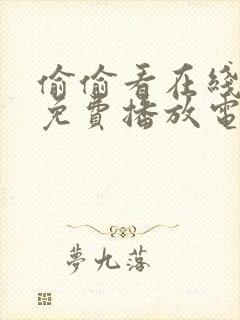 偷偷看在綫
免費播放電
夢九落